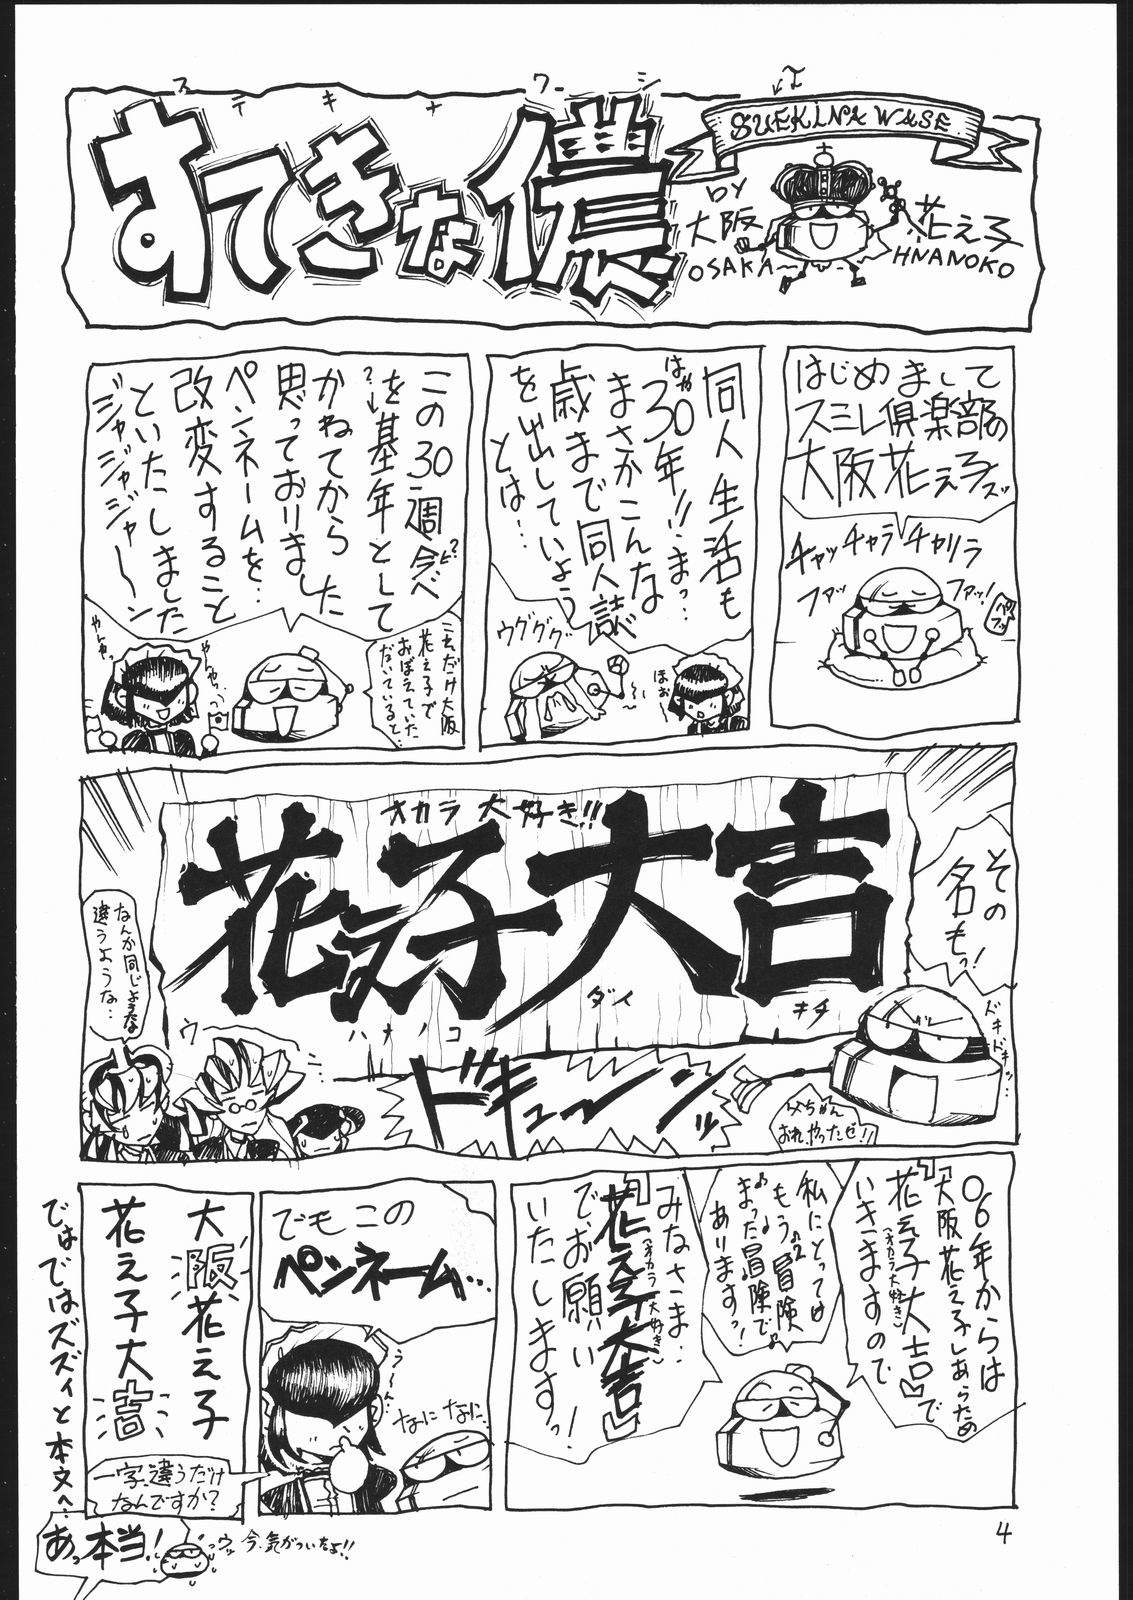 ステキナワシ
すてきな儂
SUEKINA WASE
BY
大阪
花え子
OSAKA
HNANOKO
はじめまして
スミレ倶楽部の
大阪花え子ズ
チャッチャラチャリラ
ファッ
ファッ!
同人生活も
はや
30年!!まっ…
まさかこんな
歳まで同人誌
を出していよう
とは…
ウグググ
ほおー
この30週今べ
を基年として
かねてから
思っておりました
ペンネームを…
改変すること
といたしました
ジャジャジャ〜ン
これだけ大阪
花え子で
おぼえていた
だいていると…
やんやっ
やんやっ
その
名もっ!
オカラ大好き!!
花え子大吉
ハナノコ
ダイ
キチ
ドキューーンッ
ドキドキッ
父ちゃん
おれ、やったぜ!!
なんか同じような
違うような…
ウ
ニ…
06年からは
『大阪花え子』あらため
『花え子大吉』で
(オカラ大好き)
いきますので
私にとっては
もう♪2冒険
まった冒険で
ありますっ!
みなさま…
『花え子大吉』
(オカラ大好き)
でお願い
いたしますっ!
でもこの
ペンネーム…
うーん…
なになに
大阪花え子
花え子大吉
一字違うだけ
なんですか?
ではではズズィと本文へ…
あっ本当!
ウッ今、気がついたよ!!
4